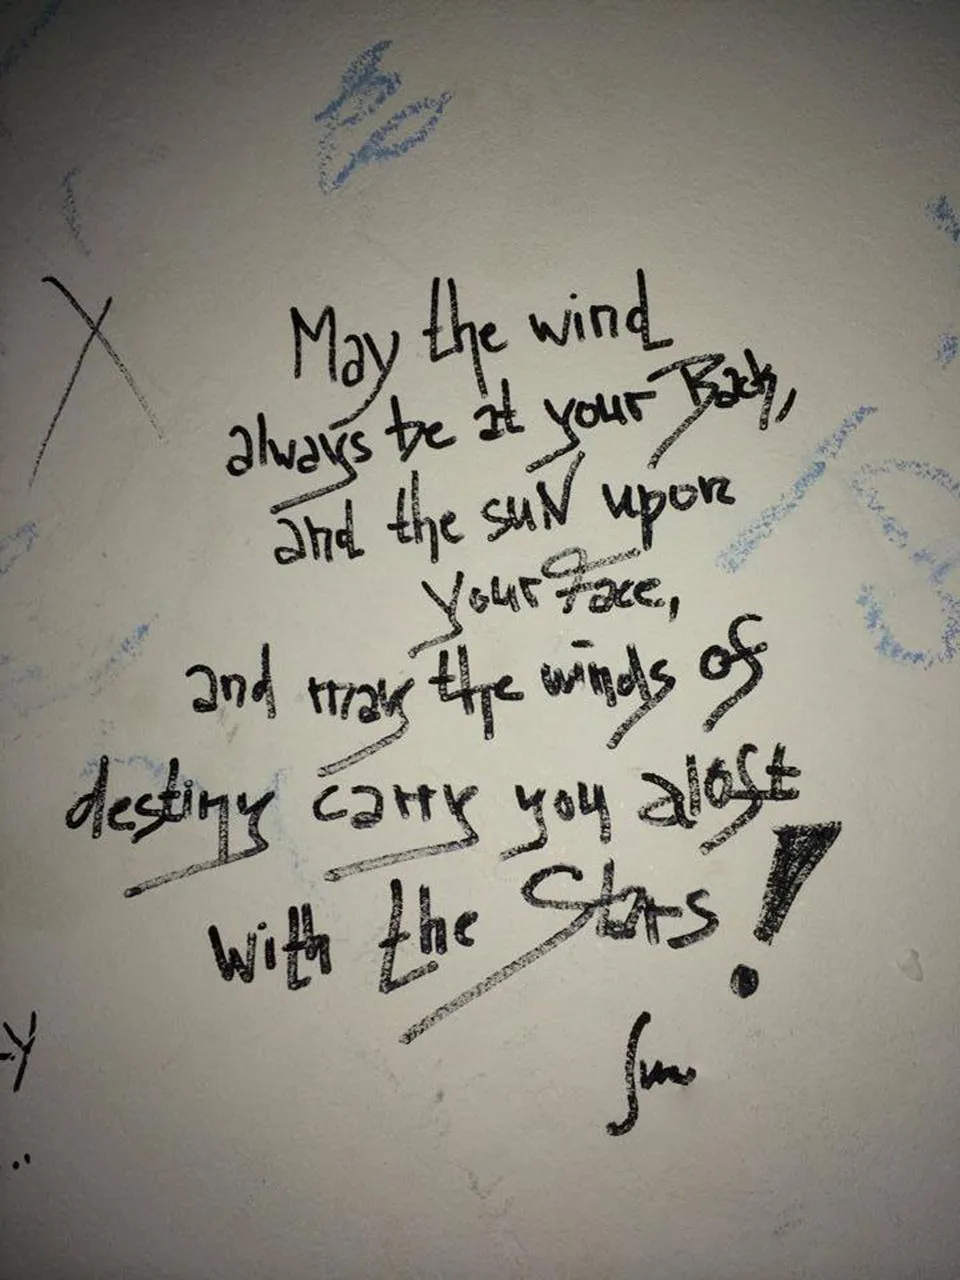 May the wind
always be at your Back,
and the suN upon
your face,
and may the winds of
destiny carry you aloft
with the Stars!